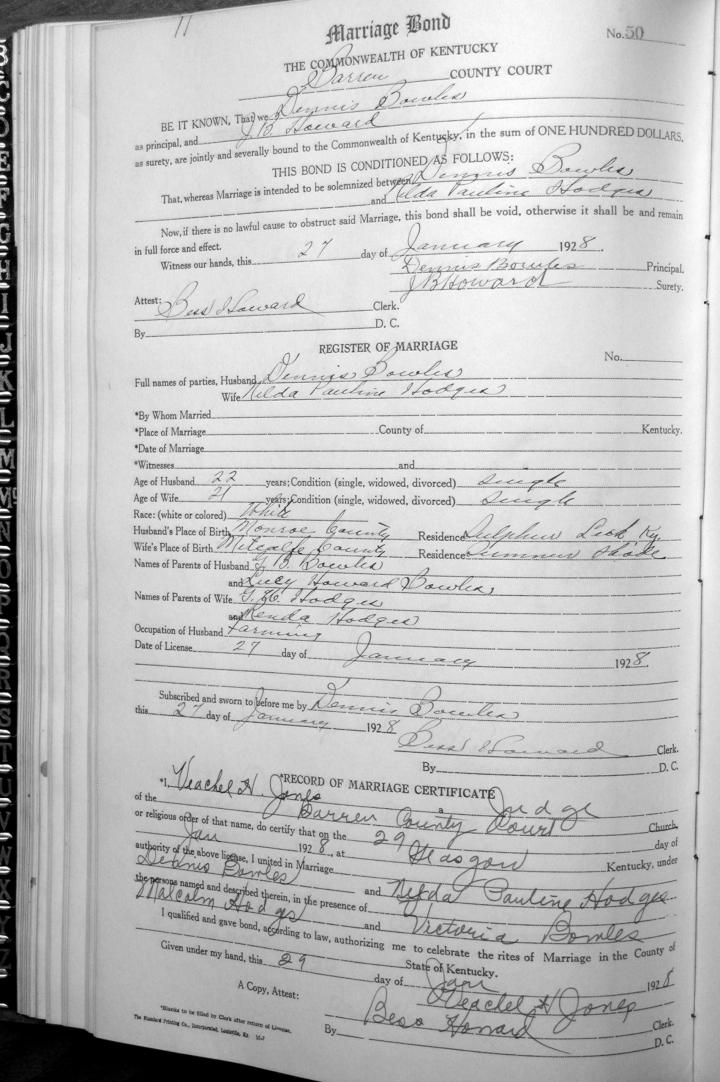 11
Marriage Bond
No. 50
THE COMMONWEALTH OF KENTUCKY
Barren COUNTY COURT
BE IT KNOWN, That we, Dennis Bowles
as principal, and J B Howard
as surety, are jointly and severally bound to the Commonwealth of Kentucky, in the sum of ONE HUNDRED DOLLARS.
THIS BOND IS CONDITIONED AS FOLLOWS:
That, whereas Marriage is intended to be solemnized between Dennis Bowles
and Nelda Pauline Hodges
Now, if there is no lawful cause to obstruct said Marriage, this bond shall be void, otherwise it shall be and remain
in full force and effect.
Witness our hands, this 27 day of January 1928.
Dennis Bowles Principal.
J B Howard Surety.
Attest: Bess Howard Clerk.
By D. C.
REGISTER OF MARRIAGE
No.
Full names of parties, Husband Dennis Bowles
Wife Nelda Pauline Hodges
*By Whom Married
*Place of Marriage County of Kentucky.
*Date of Marriage
*Witnesses and
Age of Husband 22 years; Condition (single, widowed, divorced) single
Age of Wife 21 years; Condition (single, widowed, divorced) single
Race: (white or colored) White
Husband's Place of Birth Monroe County Residence Sulphur Lick Ky.
Wife's Place of Birth Metcalfe County Residence Summer Shade
Names of Parents of Husband J B Bowles
and Lucy Howard Bowles
Names of Parents of Wife Hodges
and Hodges
Occupation of Husband Farming
Date of License 27 day of January 1928.
Subscribed and sworn to before me by Dennis Bowles
this 27 day of January 1928
Bess Howard Clerk.
By D. C.
*RECORD OF MARRIAGE CERTIFICATE
*I, Veachel H. Jones a Judge
of the Barren County Court Church,
or religious order of that name, do certify that on the 29 day of
Jan 1928, at Glasgow Kentucky, under
authority of the above license, I united in Marriage
Dennis Bowles and Nelda Pauline Hodges
the persons named and described therein, in the presence of
Malcolm Hodges and Victoria Bowles
I qualified and gave bond, according to law, authorizing me to celebrate the rites of Marriage in the County of
State of Kentucky.
Given under my hand, this 29 day of Jan 1928
Veachel H Jones
A Copy, Attest: Bess Howard Clerk.
By D. C.
*Blanks to be filled by Clerk after return of License.
The Standard Printing Co., Incorporated, Louisville, Ky.